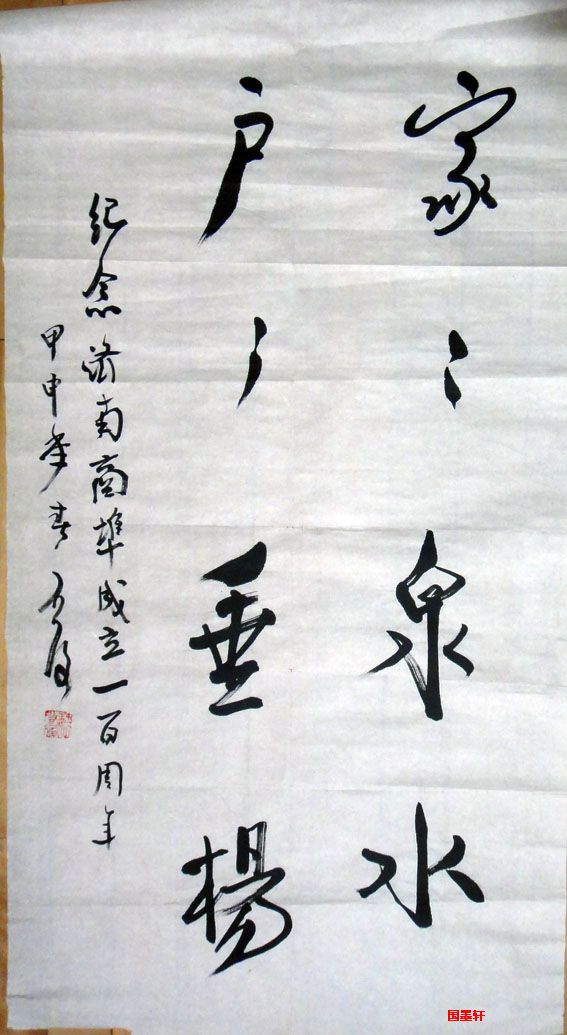 家〻泉水
户〻垂楊
纪念济南商埠成立一百周年
甲申年春
国墨轩